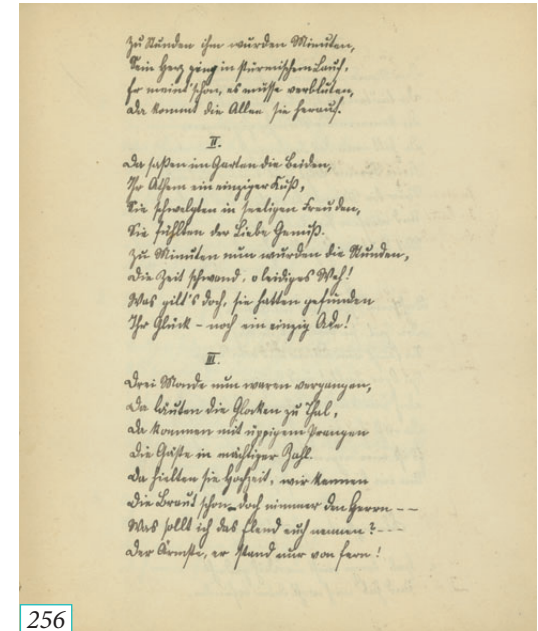 Zu Stunden ihm wurden Minuten,
Sein Herz ging in stürmischem Lauf,
Er meint' schon, es müsse verbluten,
Da kommt die Allee sie herauf.
II.
Da saßen im Garten die Beiden,
Ihr Athem ein einziger Kuß,
Sie schwelgten in seeligen Freuden,
Sie fühlten der Liebe Genuß.
Zu Minuten nun wurden die Stunden,
Die Zeit schwand, o leidiges Weh!
Was gilt's doch, sie hatten gefunden
Ihr Glück – noch ein einzig Ade!
III.
Drei Monde nun waren vergangen,
Da läuten die Glocken zu Thal,
Da kommen mit üppigem Prangen
Die Gäste in mächtiger Zahl.
Da hielten sie Hochzeit, wir kennen
Die Braut schon – doch nimmer den Herrn – –
Was sollt ich das Elend euch nennen? – – –
Der Ärmste, er stand nur von fern!
256